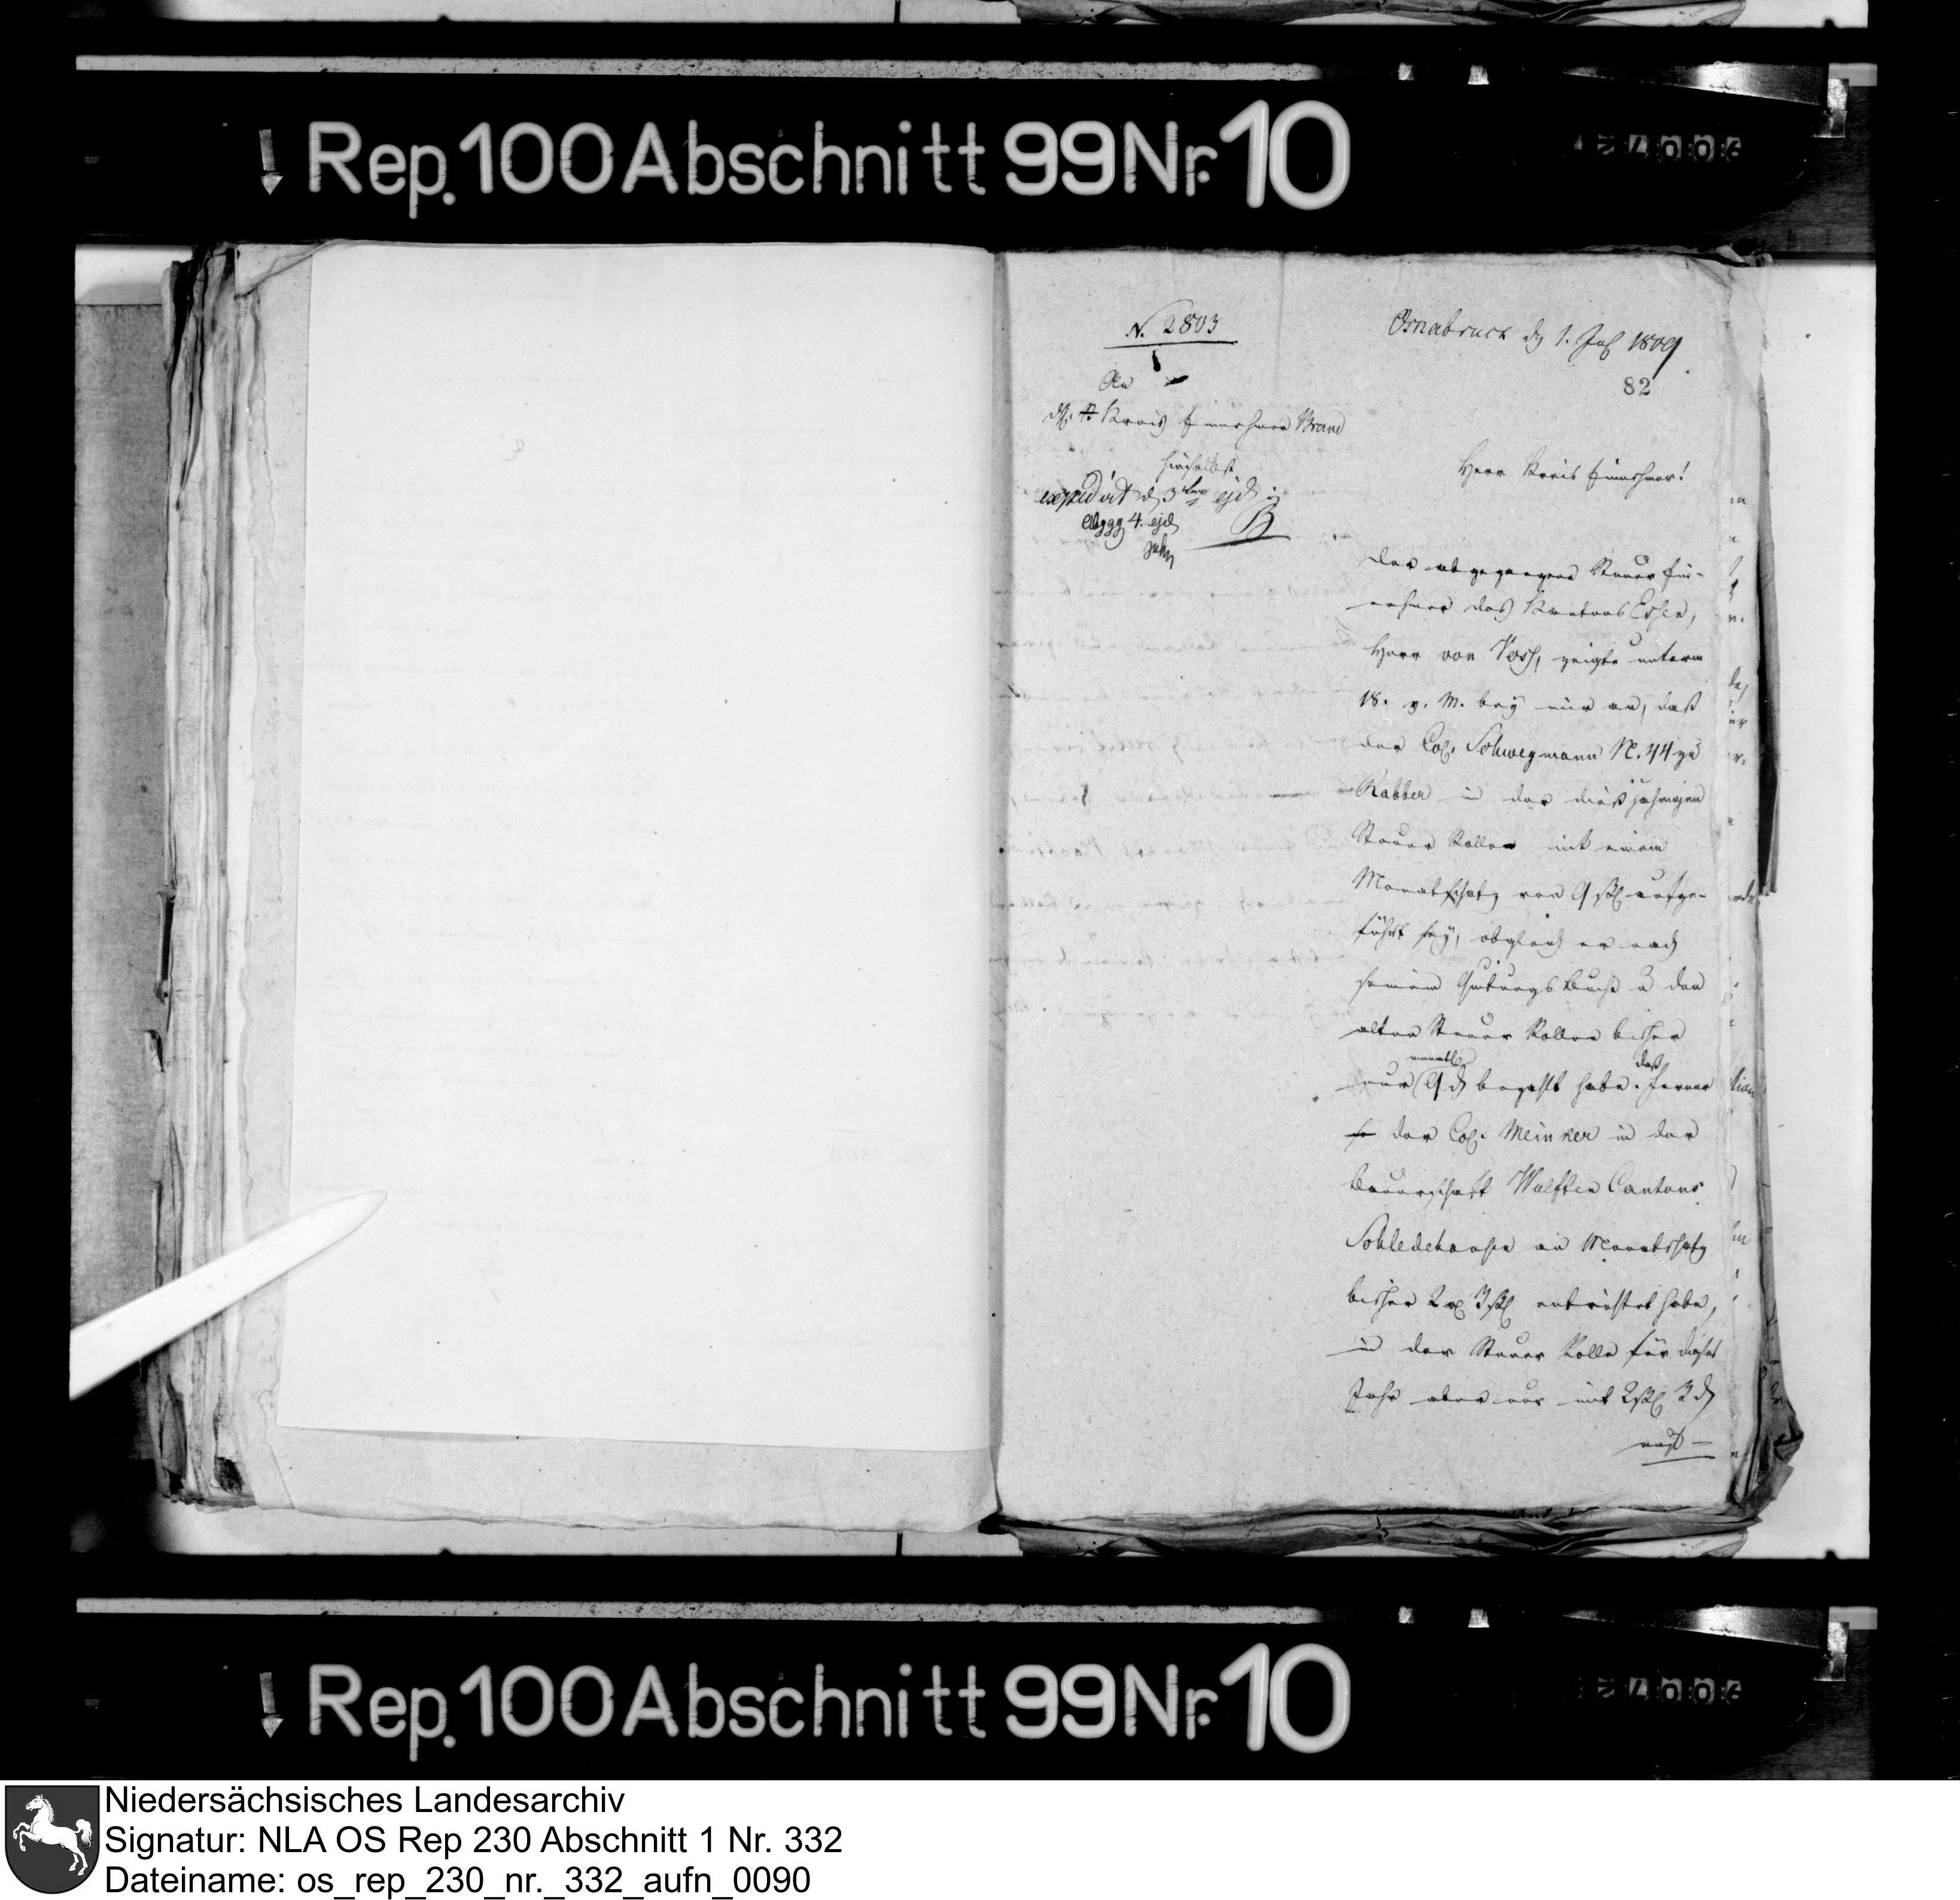 Rep. 100 Abschnitt 99 Nr. 10
N. 2803
An
Kreis Einnehmer Brand
hieselbst
expedirt d 3ten ejd
abgg 4. ejd
Osnabruck d 1. Jul 1809
82
Herr Kreis Einnehmer!
Der abgegangene Steuer Ein-
nehmer des Kantons Essen,
Herr von Voss, zeigte unterm
18. v. M. bey mir an, daß
der Col. Schwegmann N. 44 zu
Rabber in der dießjährigen
Steuer Rolle mit einem
Monatschatz von 9 ßl aufge-
führt sey, obgleich er nach
seinem Quitungs Buche u den
alten Steuer Rollen bisher
nur monatl. 9 d bezahlt habe. daß ferner
der Col. Meinker in der
Bauerschaft Wulften Cantons
Schledehausen an Monatschatz
bisher 2 rt 3 ßl entrichtet habe,
in der Steuer Rolle für dieses
Jahr aber nur mit 2 ßl 3 d
Rep. 100 Abschnitt 99 Nr. 10
Niedersächsisches Landesarchiv
Signatur: NLA OS Rep 230 Abschnitt 1 Nr. 332
Dateiname: os_rep_230_nr._332_aufn_0090